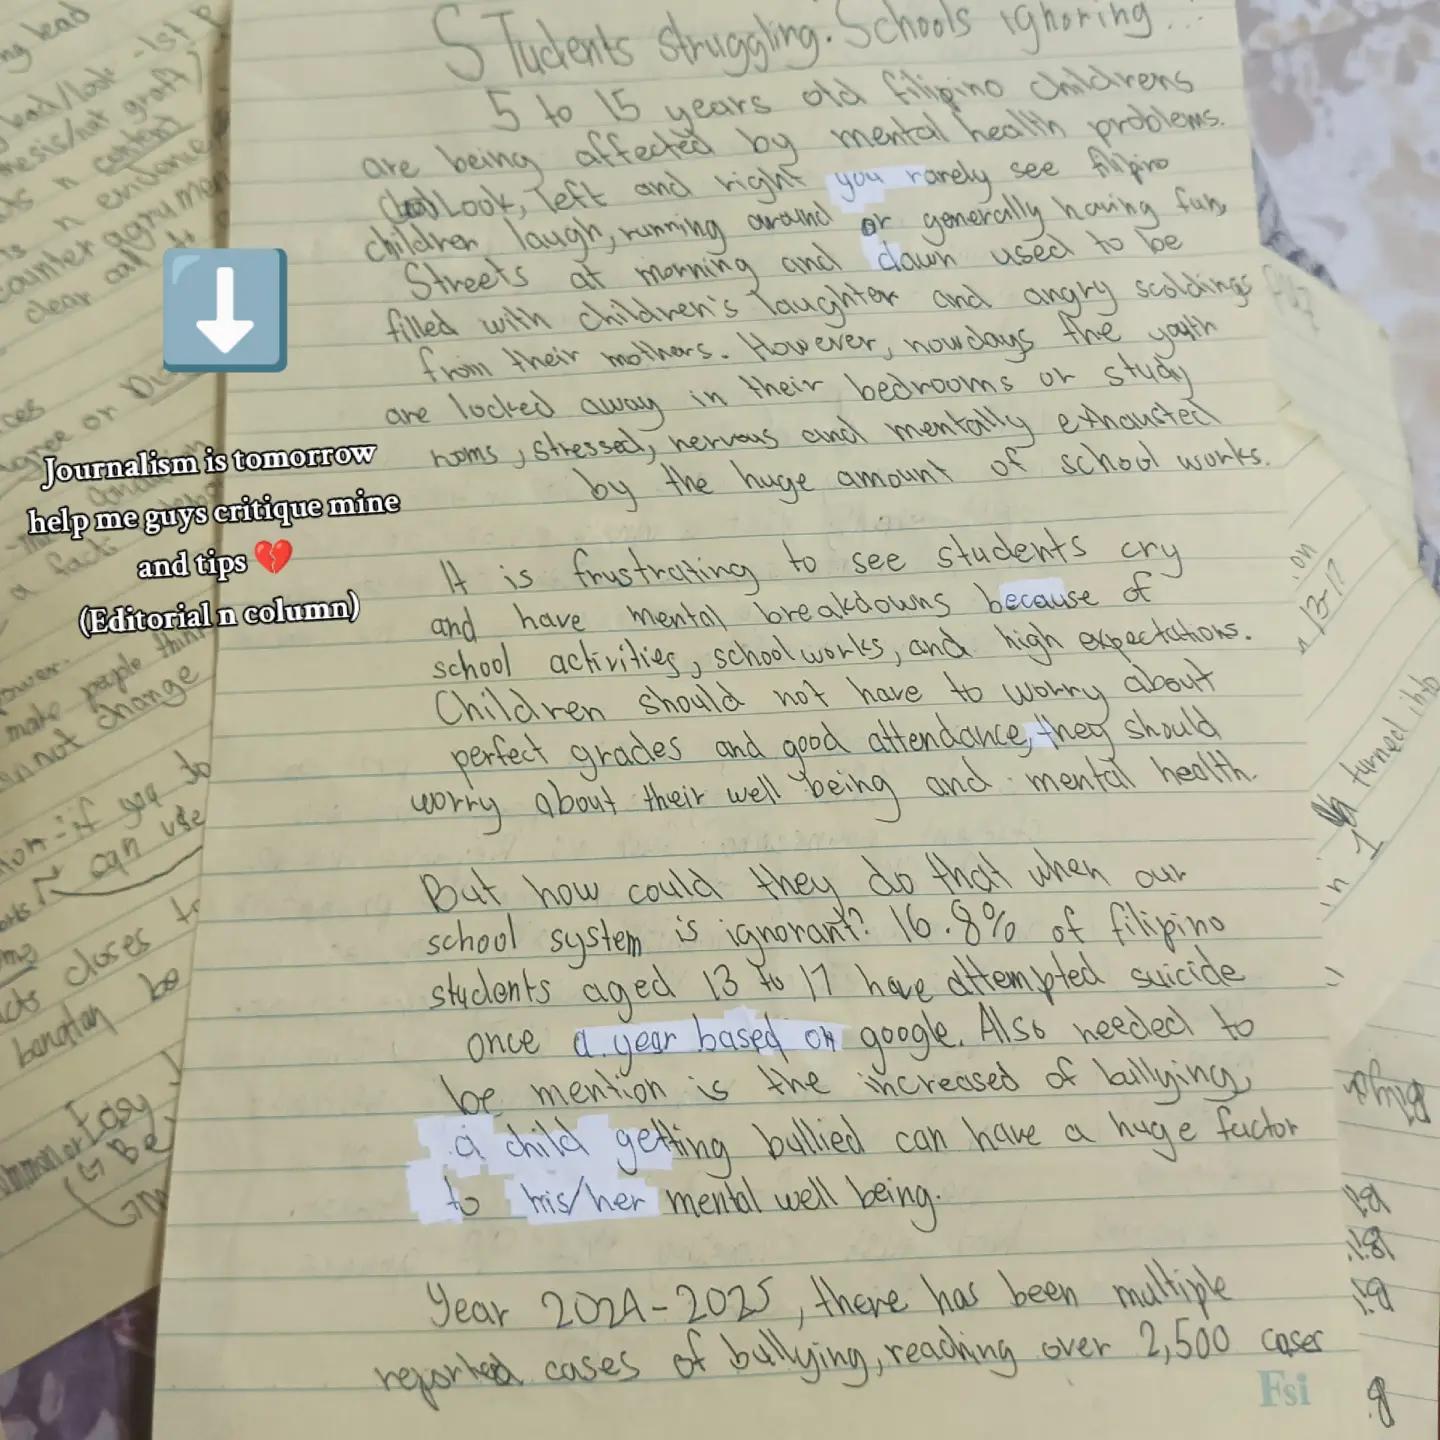 Students struggling. Schools ignoring...
5 to 15 years old filipino childrens
are being affected by mental health problems.
Look, left and right you rarely see filipino
children laugh, running around or generally having fun,
Streets at morning and dawn used to be
filled with children's laughter and angry scoldings
from their mothers. However, nowdays the youth
are locked away in their bedrooms or study
rooms, stressed, nervous and mentally exhausted
by the huge amount of school works.
It is frustrating to see students cry
and have mental breakdowns because of
school activities, school works, and high expectations.
Children should not have to worry about
perfect grades and good attendance, they should
worry about their well being and mental health.
But how could they do that when our
school system is ignorant? 16.8% of filipino
students aged 13 to 17 have attempted suicide
once a year based on google. Also needed to
be mention is the increased of bullying,
a child getting bullied can have a huge factor
to his/her mental well being.
Year 2024-2025, there has been multiple
reported cases of bullying, reaching over 2,500 cases
Fsi
Journalism is tomorrow
help me guys critique mine
and tips 💔
(Editorial n column)
lead
-1st
content
n evidence
counter
clear
agree or
a fact
make people think
not change
if you do
can use
closes to
banatan
Easy
Be
turned into